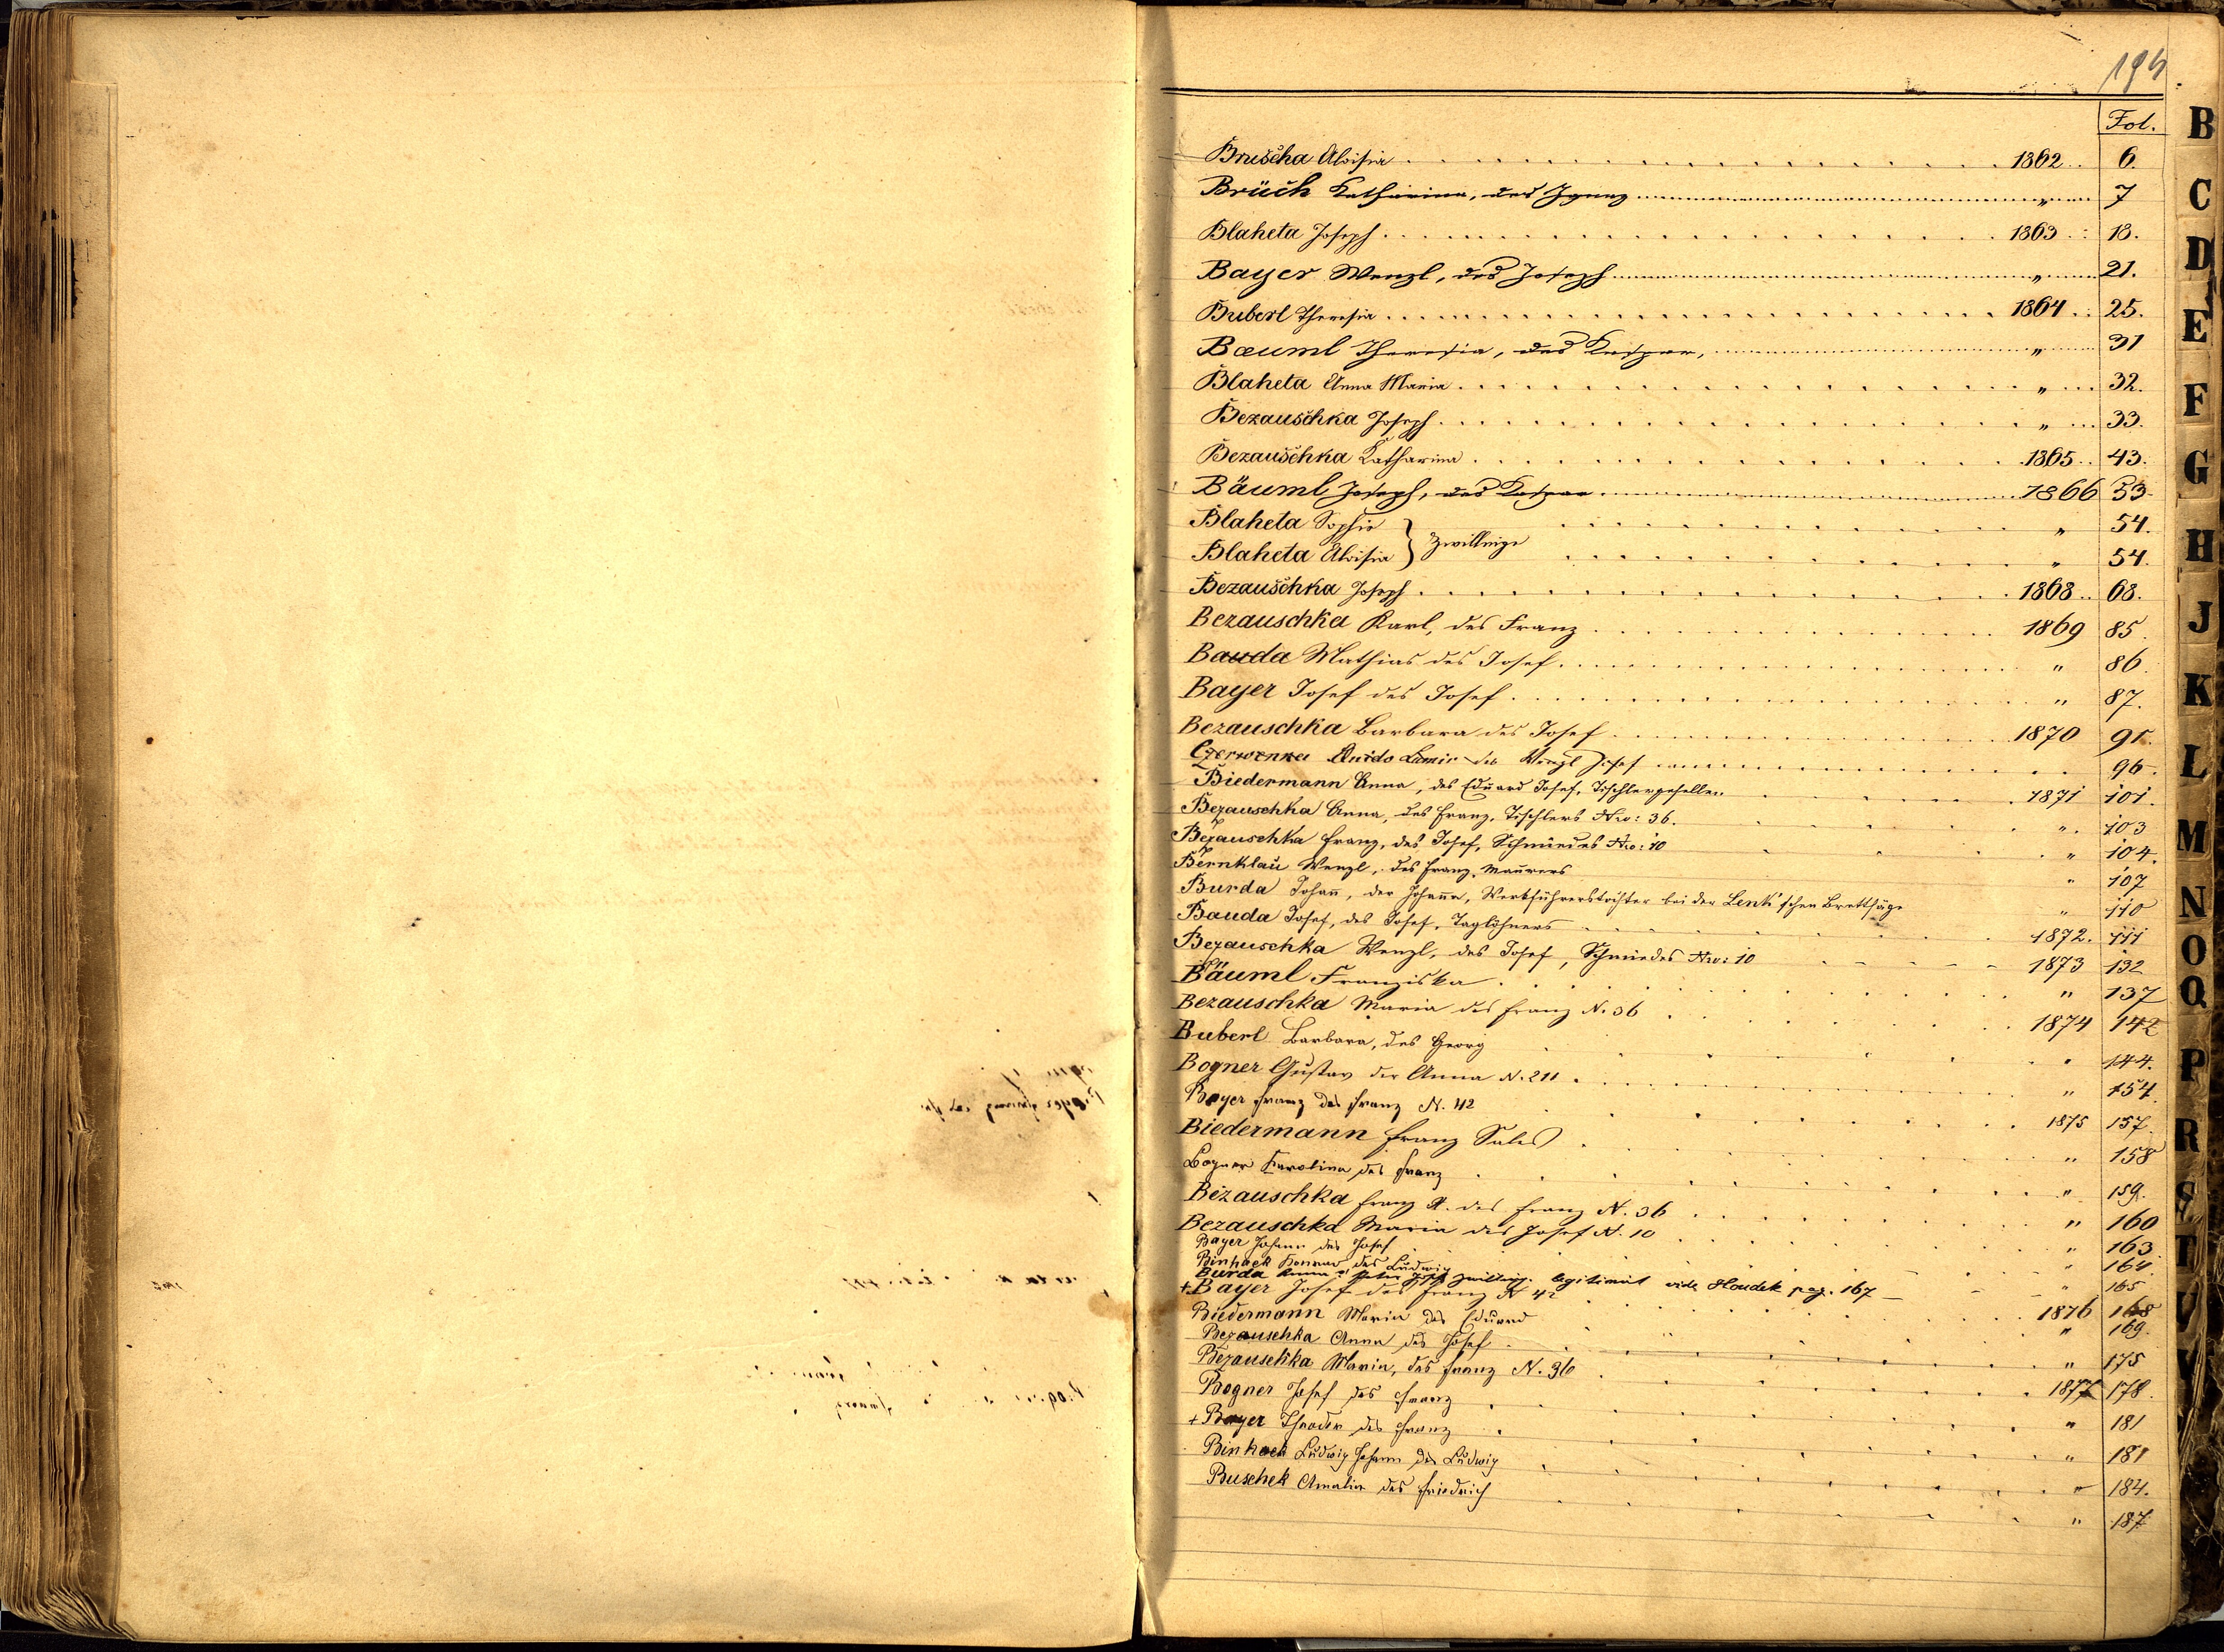 194
Fol.
Bruscha Aloisia 1862 6.
Brüch Katharina, des Ignaz " 7
Blaheta Joseph 1863 18.
Bayer Wenzl, des Joseph " 21.
Buberl Theresia 1864 25.
Baeuml Theresia, des Kaspar, " 31
Blaheta Anna Maria " 32.
Bezauschka Joseph " 33.
Bezauschka Katharina 1865 43.
Bäuml Joseph, des Kaspar 1866 53
Blaheta Sophie } Zwillinge " 54.
Blaheta Aloisia " 54.
Bezauschka Joseph 1868 68.
Bezauschka Karl, des Franz 1869 85.
Bauda Mathias des Josef " 86.
Bayer Josef des Josef " 87.
Bezauschka Barbara des Josef 1870 91.
Czerwenka Guido des Wenzl Josef 96.
Biedermann Anna, des Eduard Josef, Tischlergesellen 1871 101.
Bezauschka Anna, des Franz, Tischlers Nro: 36. " 103
Bezauschka Franz, des Josef, Schmiedes Nro: 10 " 104.
Bernklau Wenzl, des Franz, Maurers " 107
Burda Johann, der Johanna, Werkführerstochter bei der Lenk'schen Brettsäge " 110
Bauda Josef, des Josef, Taglöhners 1872. 111
Bezauschka Wenzl, des Josef, Schmiedes Nro: 10 1873 132
Bäuml Franziska " 137
Bezauschka Maria des Franz N. 36 1874 142
Buberl Barbara, des Georg " 144.
Bogner Gustav der Anna N. 211 " 154.
Bayer Franz des Franz N. 42 1875 157.
Biedermann Franz Sales " 158
Bogner Karolina des Franz " 159.
Bezauschka Franz X. des Franz N. 36 " 160
Bezauschka Maria des Josef N. 10 " 163.
Bayer Johann des Josef " 164.
Binhack Konrad des Ludwig " 165
Burda Anna Zwillinge. legitimirt vide Houdek pag. 167
+ Bayer Josef des Franz N 42 1876 168
Biedermann Maria des Eduard " 169.
Bezauschka Anna des Josef " 175
Bezauschka Maria, des Franz N. 36 1877 178.
Bogner Josef des Franz " 181
+ Bayer Theodor des Franz " 181
Binhack Ludwig Johann des Ludwig " 184.
Buschek Amalia des Friedrich " 187
B
C
D
E
F
G
H
J
K
L
M
N
O
Q
P
R
S
T
V
W